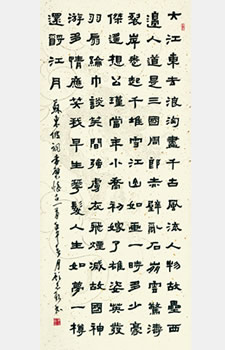 大江東去浪淘盡千古風流人物故壘西
邊人道是三國周郎赤壁亂石崩雲驚濤
裂岸卷起千堆雪江山如畫一時多少豪
傑遙想公瑾當年小喬初嫁了雄姿英發
羽扇綸巾談笑間強虜灰飛煙滅故國神
游多情應笑我早生華髮人生如夢一樽
還酹江月
蘇東坡詞赤壁懷古一首